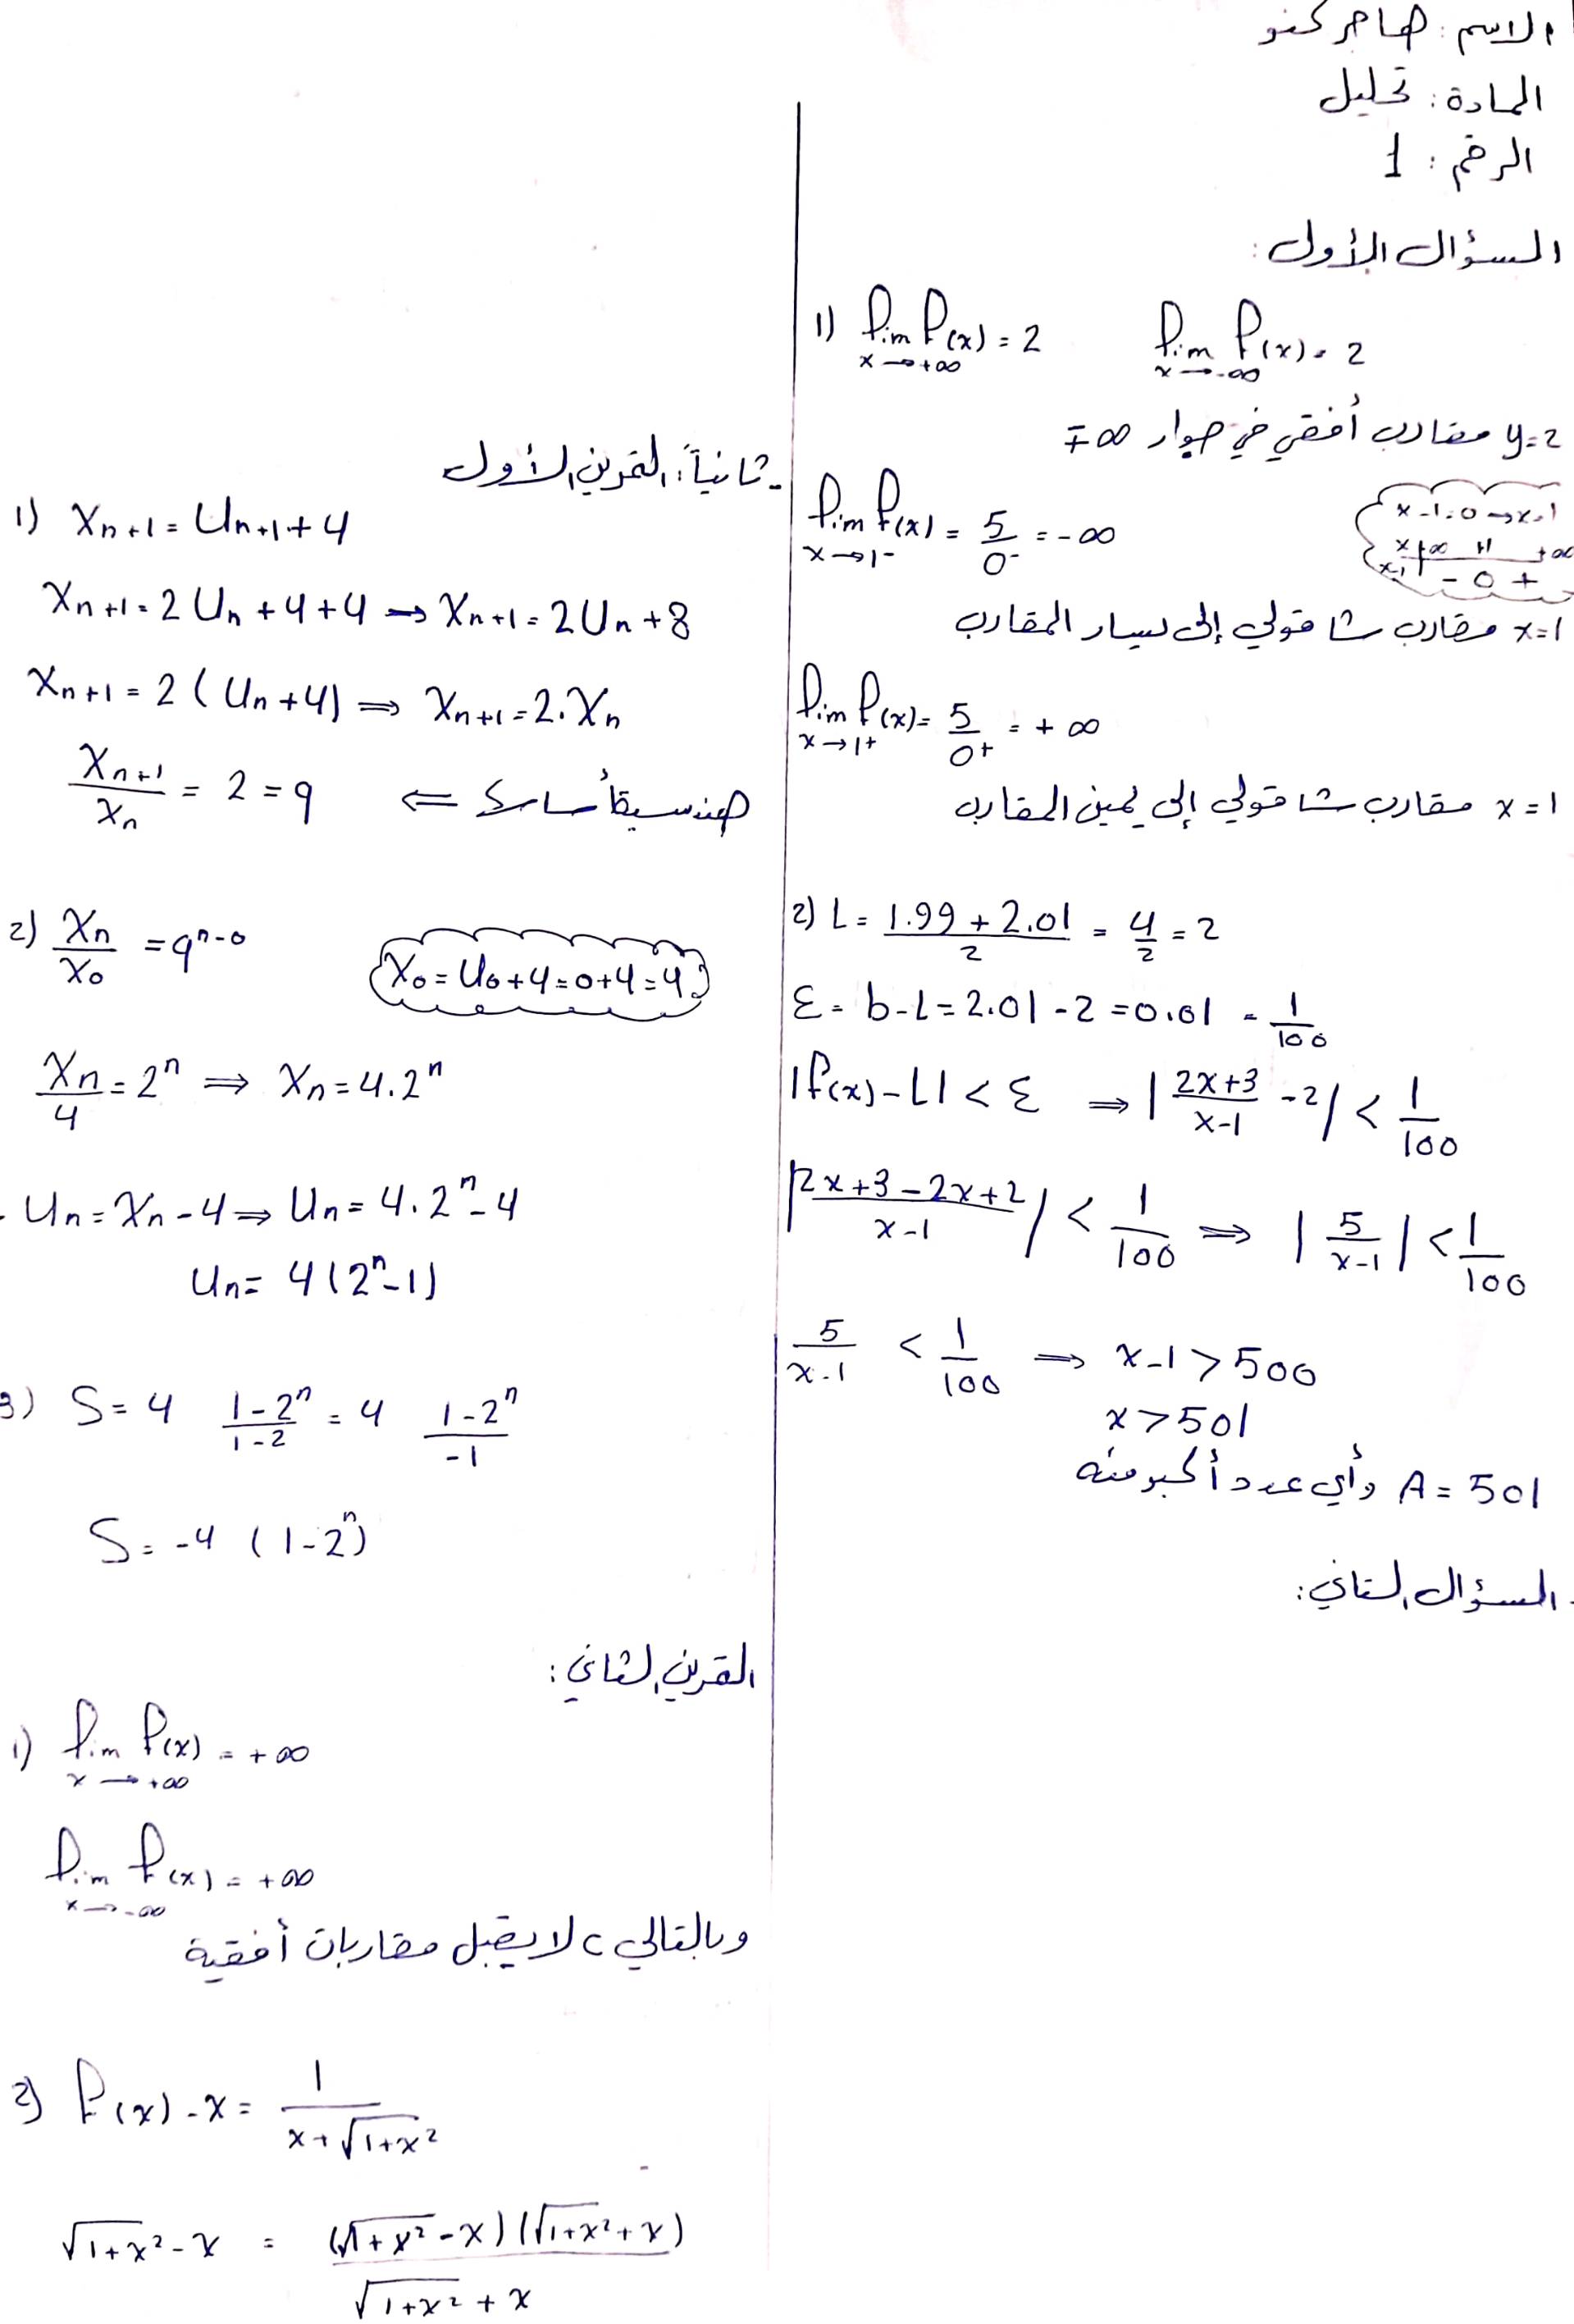 الاسم: هاجر كنو
المادة: تحليل
الرقم: 1
السؤال الأول:
1) lim f(x) = 2 lim f(x) = 2
x → +∞ x → -∞
y=2 مقارب أفقي في جوار ∓∞
lim f(x) = 5/0- = -∞
x → 1-
x-1=0 → x=1
x=1 مقارب شاقولي إلى يسار المقارب
lim f(x) = 5/0+ = +∞
x → 1+
x=1 مقارب شاقولي إلى يمين المقارب
2) L = (1.99 + 2.01)/2 = 4/2 = 2
ε = b-L = 2.01 - 2 = 0.01 = 1/100
|f(x) - L| < ε ⇒ |(2x+3)/(x-1) - 2| < 1/100
|(2x+3-2x+2)/(x-1)| < 1/100 ⇒ |5/(x-1)| < 1/100
5/(x-1) < 1/100 ⇒ x-1 > 500
x > 501
A = 501 وأي عدد أكبر منه
السؤال الثاني:
ثانياً: التمرين الأول
1) Xn+1 = Un+1 + 4
Xn+1 = 2Un + 4 + 4 → Xn+1 = 2Un + 8
Xn+1 = 2(Un + 4) ⇒ Xn+1 = 2.Xn
Xn+1/Xn = 2 = q ⇐ هندسية أساسها
2) Xn/X0 = qⁿ⁻⁰
X0 = U0 + 4 = 0 + 4 = 4
Xn/4 = 2ⁿ ⇒ Xn = 4.2ⁿ
Un = Xn - 4 ⇒ Un = 4.2ⁿ - 4
Un = 4(2ⁿ - 1)
3) S = 4 (1-2ⁿ)/(1-2) = 4 (1-2ⁿ)/-1
S = -4 (1-2ⁿ)
التمرين الثاني:
1) lim f(x) = +∞
x → +∞
lim f(x) = +∞
x → -∞
وبالتالي c لا يقبل مقاربات أفقية
2) f(x) - x = 1/(x+√1+x²)
√1+x² - x = (√1+x² - x)(√1+x² + x)/(√1+x² + x)